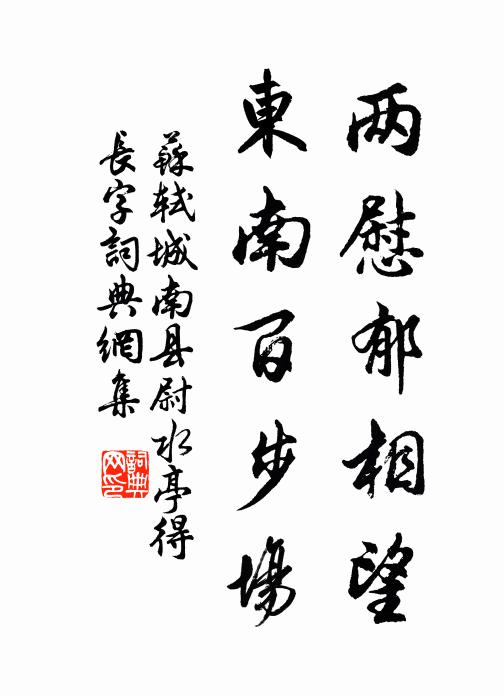 两慰郁相望
東南百步場
蘇軾城南县尉水亭得
長字詞典網集
詞典网印